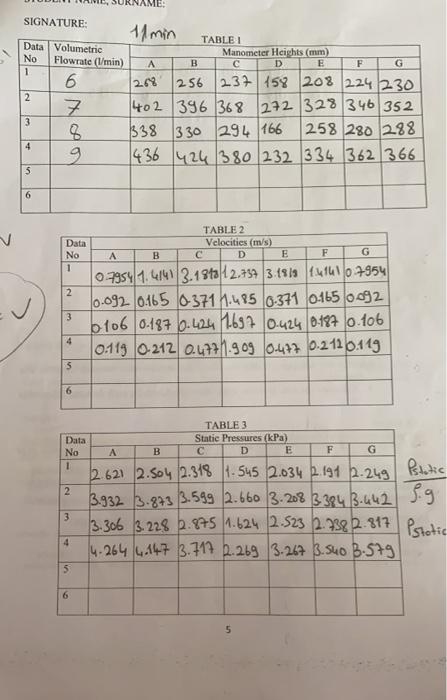 STUDENT NAME, SURNAME:
SIGNATURE:
11min
TABLE 1
Data No Volumetric Flowrate (l/min) Manometer Heights (mm)
A B C D E F G
1 6 268 256 237 158 208 224 230
2 7 402 396 368 272 328 346 352
3 8 338 330 294 166 258 280 288
4 9 436 424 380 232 334 362 366
5
6
TABLE 2
Data No Velocities (m/s)
A B C D E F G
1 0.7954 1.4141 12.737 1.4141 0.7954
2 0.092 0.165 0.371 1.485 0.371 0.165 0.092
3 0.106 0.187 0.424 1.697 0.424 0.187 0.106
4 0.119 0.212 0.477 1.909 0.477 0.212 0.119
5
6
TABLE 3
Data No Static Pressures (kPa)
A B C D E F G
1 2.621 2.504 2.318 1.545 2.034 2.191 2.249 Pstatic
2 3.932 3.873 3.599 2.660 3.208 3.384 3.442 ρ.g
3 3.306 3.228 2.875 1.624 2.523 2.738 2.817 Pstatic
4 4.264 4.147 3.717 2.269 3.267 3.540 3.579
5
6
5